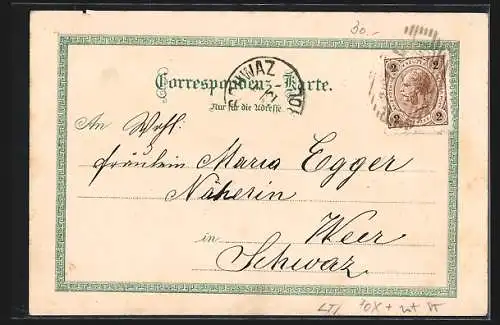 30.-
SCHWAZ
Correspondenz-Karte.
Nur für die Adresse.
2 2
2 2
An Wohl.
Fräulein Maria Egger
Näherin
in Weer
Schwaz